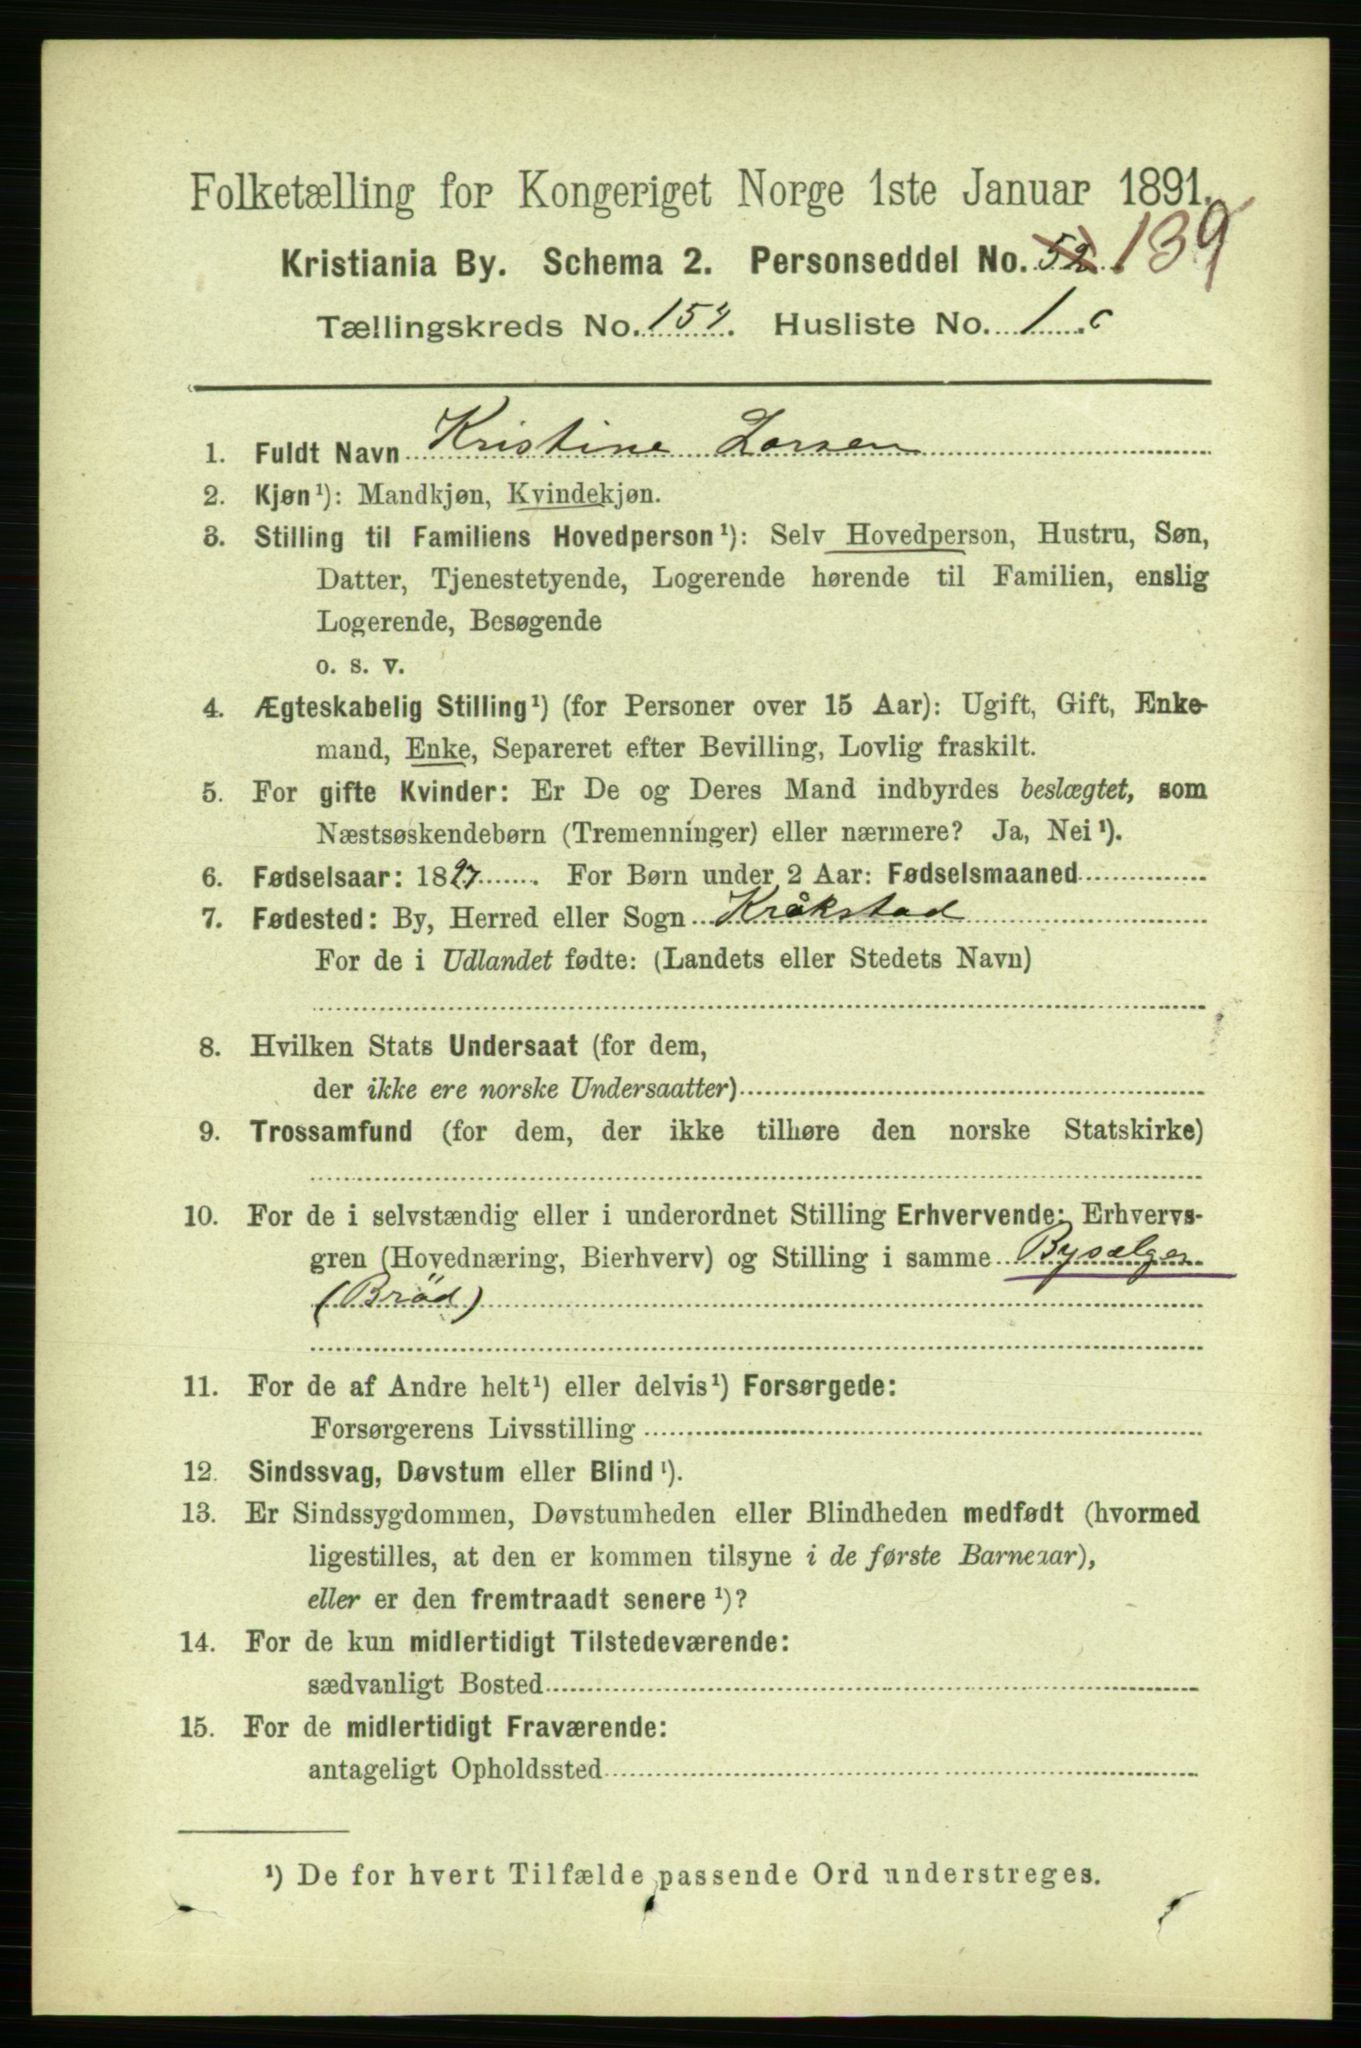 Folketælling for Kongeriget Norge 1ste Januar 1891.
Kristiania By. Schema 2. Personseddel No. 52 139
Tællingskreds No. 154. Husliste No. 1 c
1. Fuldt Navn Kristine Larsen
2. Kjøn¹): Mandkjøn, Kvindekjøn.
3. Stilling til Familiens Hovedperson¹): Selv Hovedperson, Hustru, Søn,
Datter, Tjenestetyende, Logerende hørende til Familien, enslig
Logerende, Besøgende
o. s. v.
4. Ægteskabelig Stilling¹) (for Personer over 15 Aar): Ugift, Gift, Enke-
mand, Enke, Separeret efter Bevilling, Lovlig fraskilt.
5. For gifte Kvinder: Er De og Deres Mand indbyrdes beslægtet, som
Næstsøskendebørn (Tremenninger) eller nærmere? Ja, Nei¹).
6. Fødselsaar: 1827. For Børn under 2 Aar: Fødselsmaaned
7. Fødested: By, Herred eller Sogn Kråkstad
For de i Udlandet fødte: (Landets eller Stedets Navn)
8. Hvilken Stats Undersaat (for dem,
der ikke ere norske Undersaatter)
9. Trossamfund (for dem, der ikke tilhøre den norske Statskirke)
10. For de i selvstændig eller i underordnet Stilling Erhvervende: Erhvervs-
gren (Hovednæring, Bierhverv) og Stilling i samme Bysælger
(Brød)
11. For de af Andre helt¹) eller delvis¹) Forsørgede:
Forsørgerens Livsstilling
12. Sindssvag, Døvstum eller Blind¹).
13. Er Sindssygdommen, Døvstumheden eller Blindheden medfødt (hvormed
ligestilles, at den er kommen tilsyne i de første Barneaar),
eller er den fremtraadt senere¹)?
14. For de kun midlertidigt Tilstedeværende:
sædvanligt Bosted
15. For de midlertidigt Fraværende:
antageligt Opholdssted
¹) De for hvert Tilfælde passende Ord understreges.